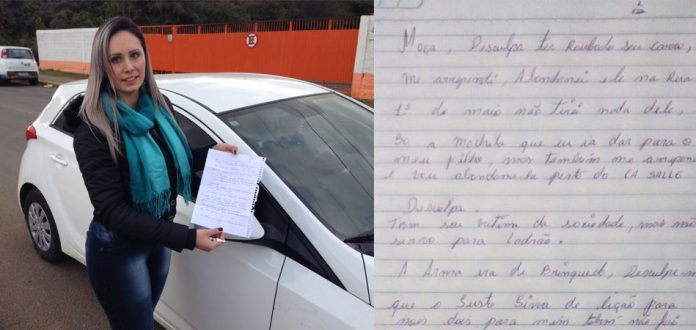 Moça, Desculpa ter Roubado seu Carro,
me arrependi, Abandonei ele na Rua
1º de maio não tirei nada dele,
So a mochila que eu ia dar para o
meu filho, mas tembem me arrepen
e vou abandona-la perto do LA SALLE
Desculpa.
Tem sou vitima da sociedade, mas não
sirvo para Ladrão.
A Arma era de Brinquedo, Desculpe-m
que o Susto Sirva de lição para
nois dois para mim tem não foi